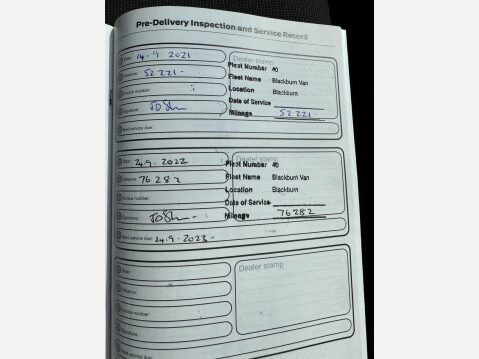 Pre-Delivery Inspection and Service Record
Date: 14.9 2021
Distance: 52221.
Invoice number:
Signature:
Next service due:
Dealer stamp
Fleet Number 40
Fleet Name Blackburn Van
Location Blackburn
Date of Service
Mileage 52221.
Date: 24.9.2022
Distance: 76282
Invoice number:
Signature:
Next service due: 24.9.2023.
Dealer stamp
Fleet Number 40
Fleet Name Blackburn Van
Location Blackburn
Date of Service
Mileage 76282
Date:
Distance:
Invoice number:
Signature:
Next service due:
Dealer stamp